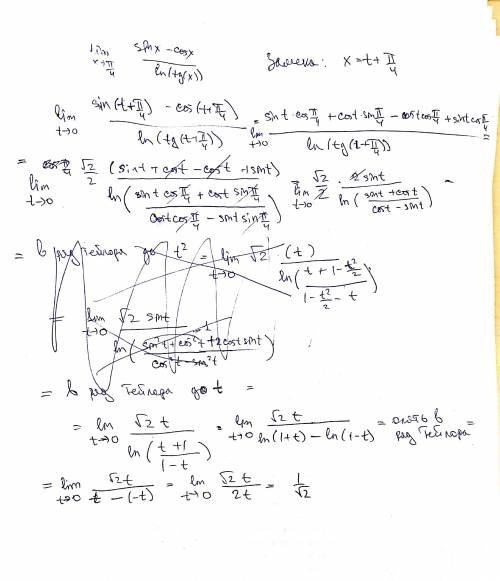 lim x→π/4 (sin x − cos x)/(ln(tg x)) Замена: x = t + π/4
lim t→0 (sin(t+π/4) − cos(t+π/4))/(ln(tg(t+π/4))) = lim t→0 (sin t·cos π/4 + cos t sin π/4 − cos t cos π/4 + sin t cos π/4)/(ln(tg(t+π/4))) =
= lim t→0 (√2/2 (sin t + cos t − cos t + sin t))/(ln((sin t cos π/4 + cos t sin π/4)/(cos t cos π/4 − sin t sin π/4))) = lim t→0 (√2/2 · 2 sin t)/(ln((sin t + cos t)/(cos t − sin t))) =
= в ряд Тейлора до t² = lim t→0 √2 · (t)/(ln((t + 1 − t²/2)/(1 − t²/2 − t)))
= lim t→0 (√2 sin t)/(ln((sin²t + cos²t + 2cos t sin t)/(cos²t − sin²t)))
= в ряд Тейлора до t =
= lim t→0 (√2 t)/(ln((t+1)/(1−t))) = lim t→0 (√2 t)/(ln(1+t) − ln(1−t)) = опять в ряд Тейлора =
= lim t→0 (√2 t)/(t − (−t)) = lim t→0 (√2 t)/(2t) = 1/√2